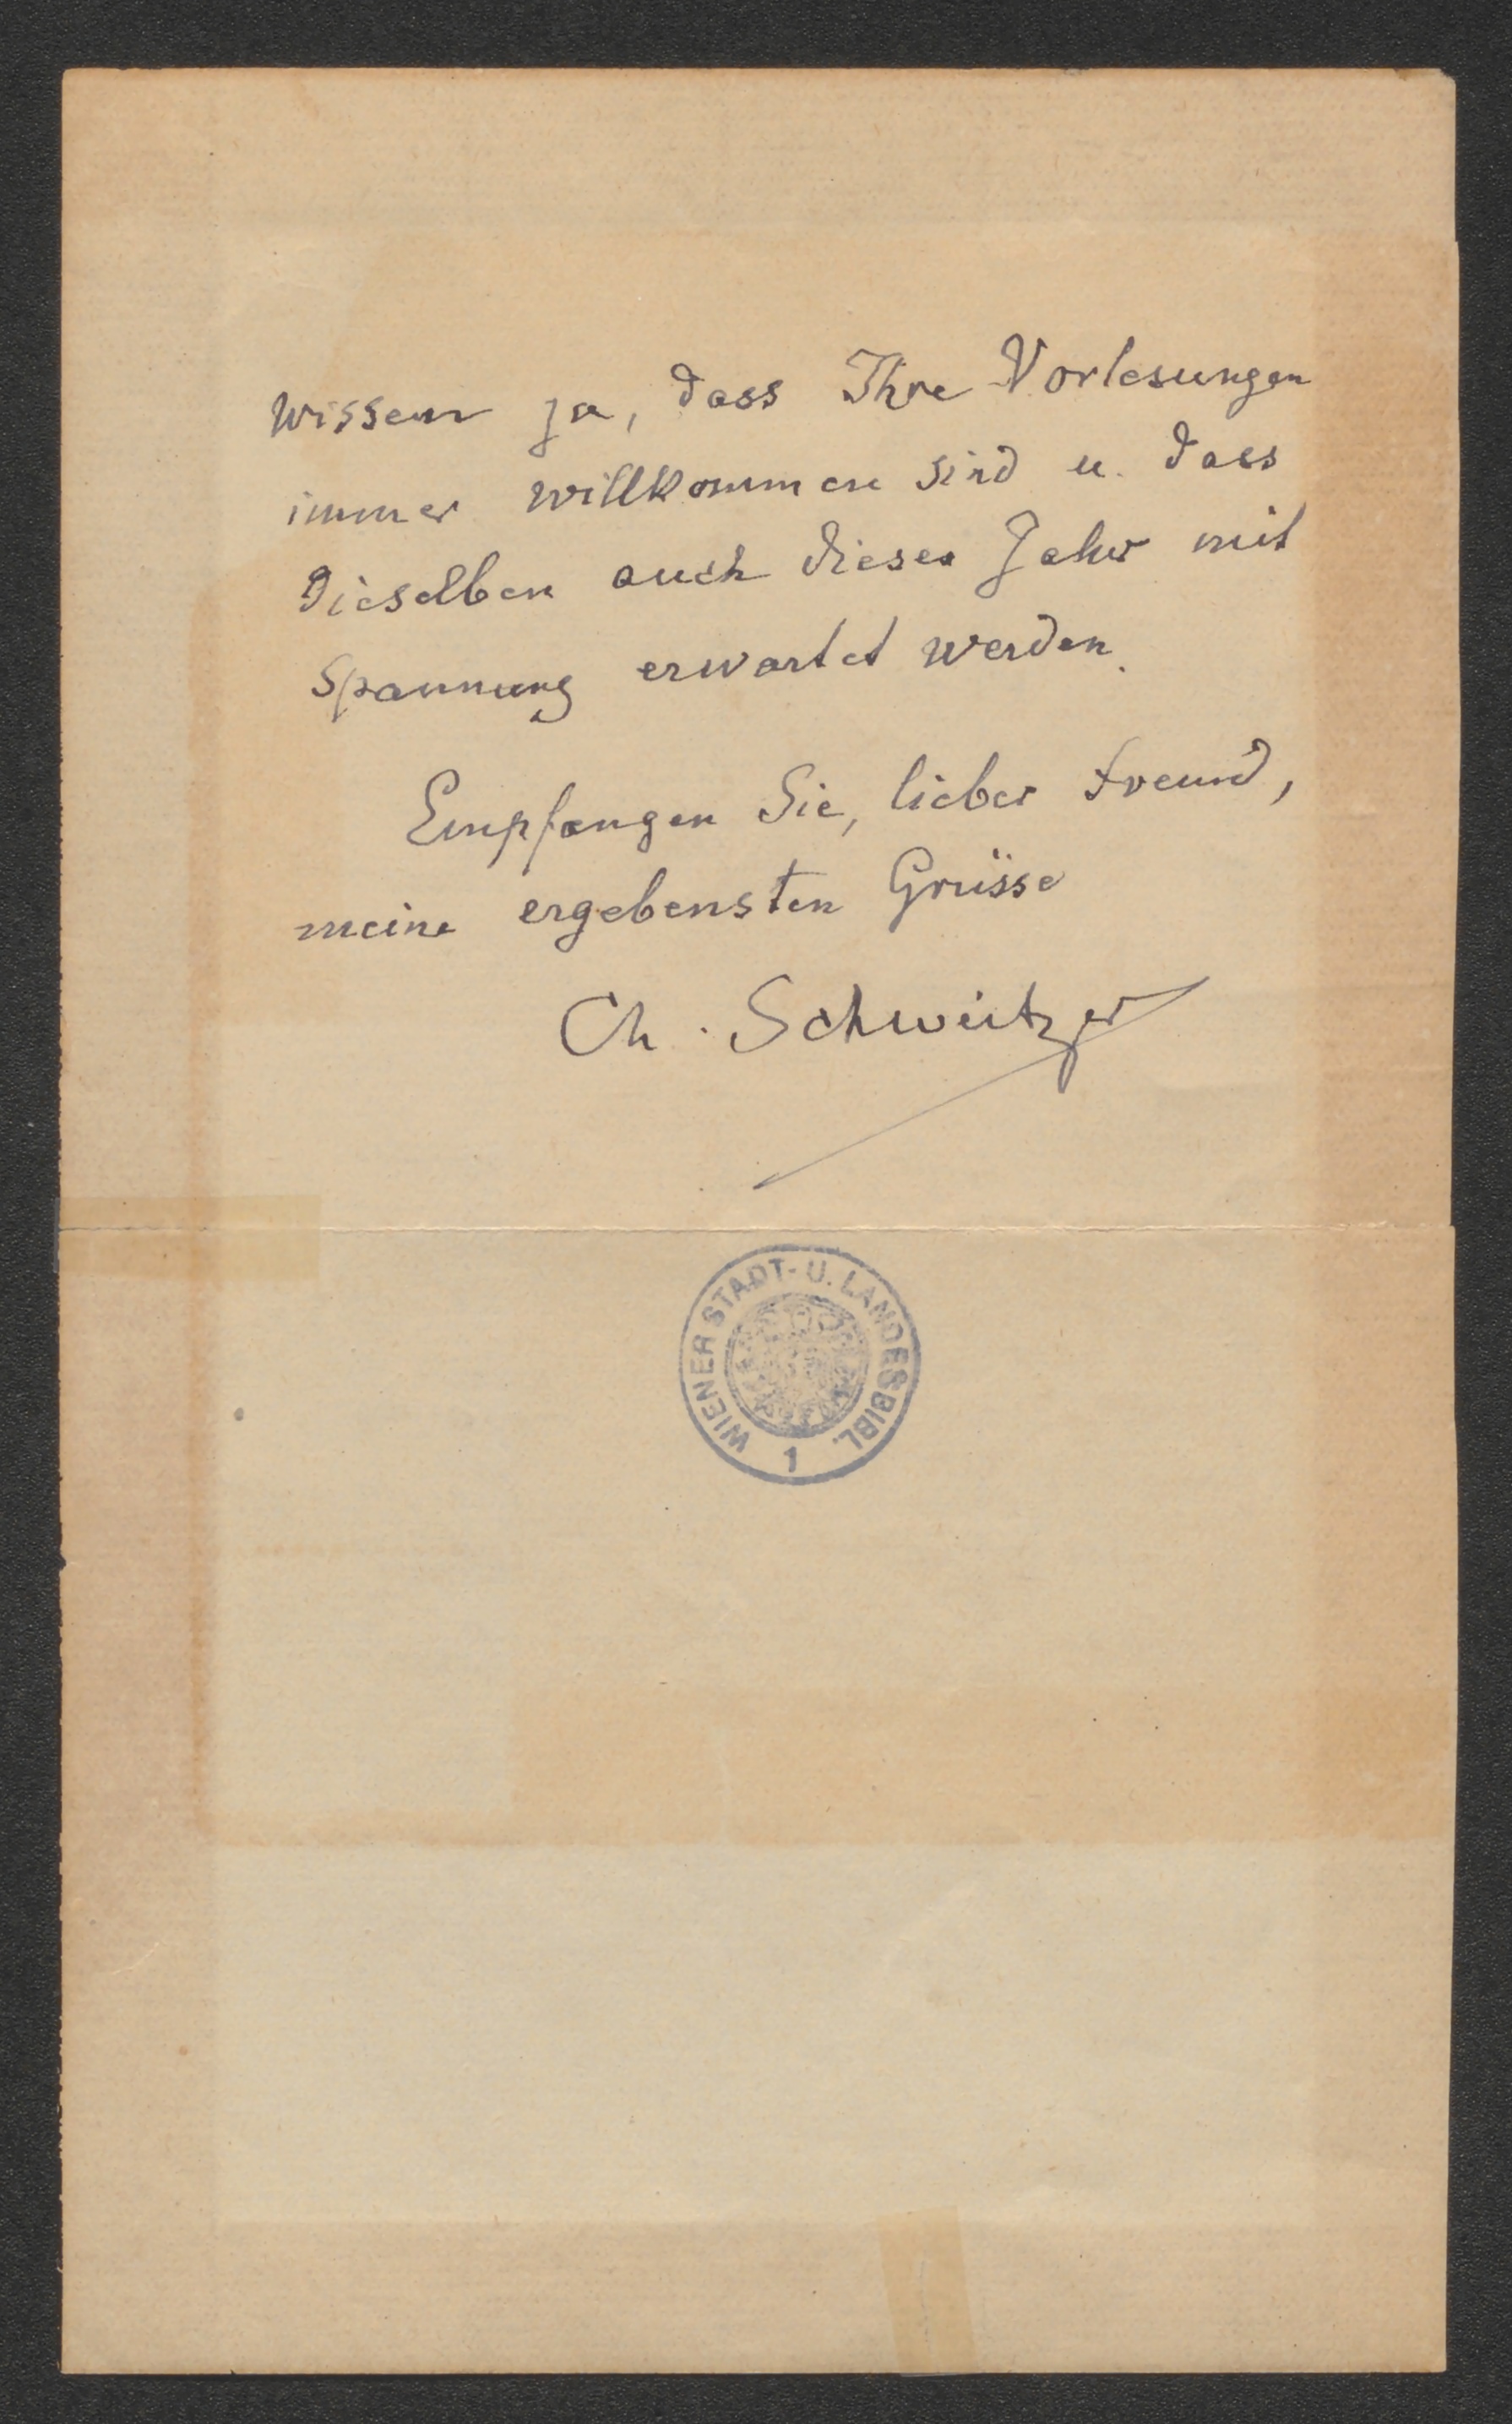 wissen ja, dass Ihre Vorlesungen
immer willkommen sind u. dass
dieselben auch dieses Jahr mit
Spannung erwartet werden.
Empfangen Sie, lieber Freund,
meine ergebensten Grüsse
Ch. Schweitzer
WIENER STADT- U. LANDESBIBL.
1